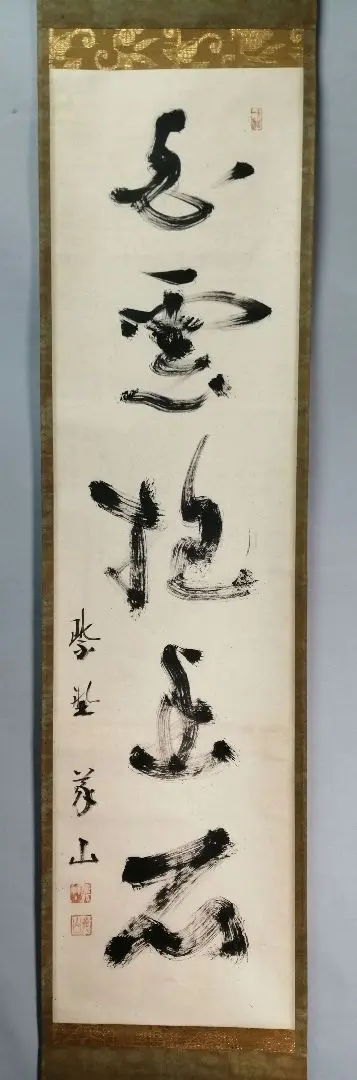 白雲抱幽石
紫野 山